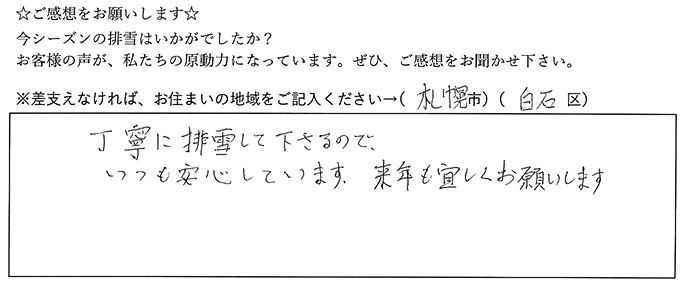 ☆ご感想をお願いします☆
今シーズンの排雪はいかがでしたか？
お客様の声が、私たちの原動力になっています。ぜひ、ご感想をお聞かせ下さい。
※差支えなければ、お住まいの地域をご記入ください→( 札幌市) ( 白石 区)
丁寧に排雪して下さるので、
いつも安心しています。来年も宜しくお願いします